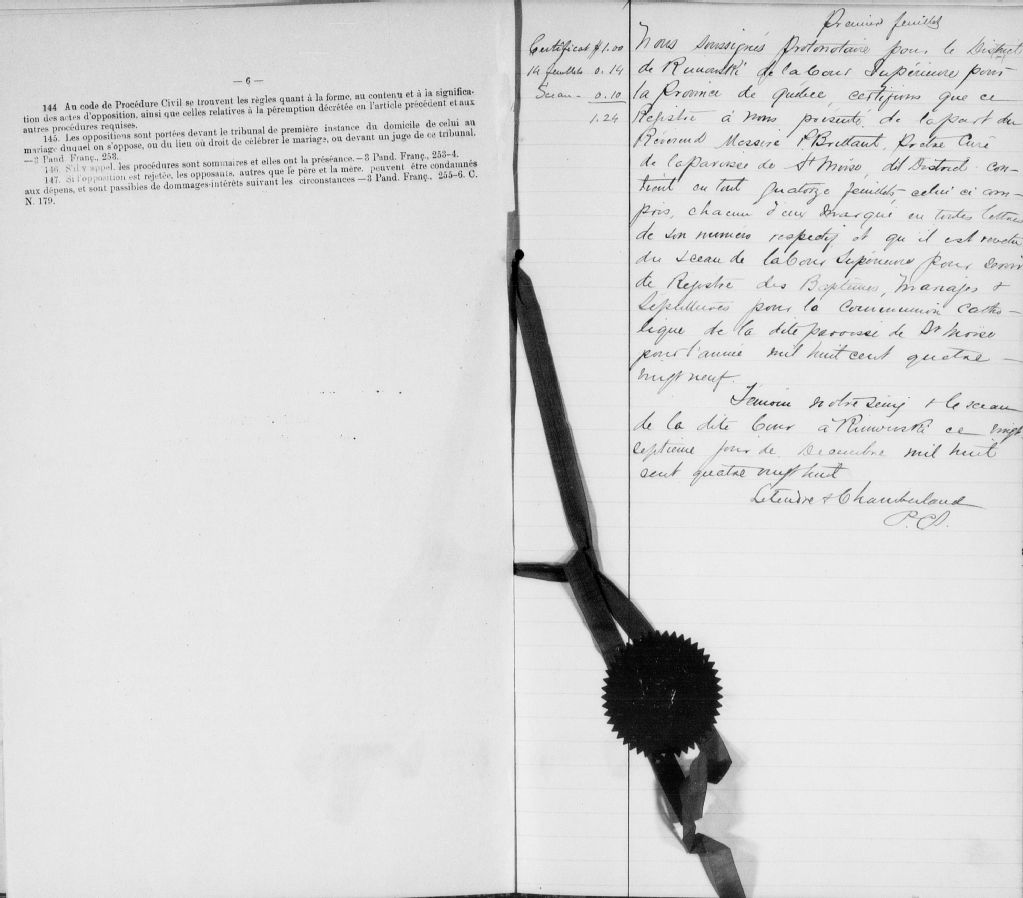 — 6 —
144 Au code de Procédure Civil se trouvent les règles quant à la forme, au contenu et à la significa-
tion des actes d'opposition, ainsi que celles relatives à la péremption décrétée en l'article précédent et aux
autres procédures requises.
145. Les oppositions sont portées devant le tribunal de première instance du domicile de celui au
mariage duquel on s'oppose, ou du lieu où droit de célébrer le mariage, ou devant un juge de ce tribunal.
—3 Pand. Franç., 253.
146. S'il y appel, les procédures sont sommaires et elles ont la préséance.—3 Pand. Franç., 253-4.
147. Si l'opposition est rejetée, les opposants, autres que le père et la mère, peuvent être condamnés
aux dépens, et sont passibles de dommages-intérêts suivant les circonstances—3 Pand. Franç., 255-6. C.
N. 179.
Certificat $1.00
14 feuillets 0.14
Sceau - 0.10
1.24
Premier feuillet
Nous soussignés Protonotaire pour le District
de Rimouski de la Cour Supérieure pour
la Province de Québec, certifions que ce
Registre à nous présenté de la part du
Révérend Messire P. Brillant, Prêtre Curé
de la paroisse de St Moïse, dit District con-
tient en tout quatorze feuillets celui ci com-
pris, chacun d'eux marqué en toutes lettres
de son numéro respectif et qu'il est revêtu
du sceau de la Cour Supérieure pour servir
de Registre des Baptêmes, Mariages &
Sépultures pour la Communion Catho-
lique de la dite paroisse de St Moïse
pour l'année mil huit cent quatre
vingt neuf.
Témoin notre seing & le sceau
de la dite Cour à Rimouski ce vingt
septième jour de Décembre mil huit
cent quatre vingt huit
Letendre & Chamberland
P.C.S.